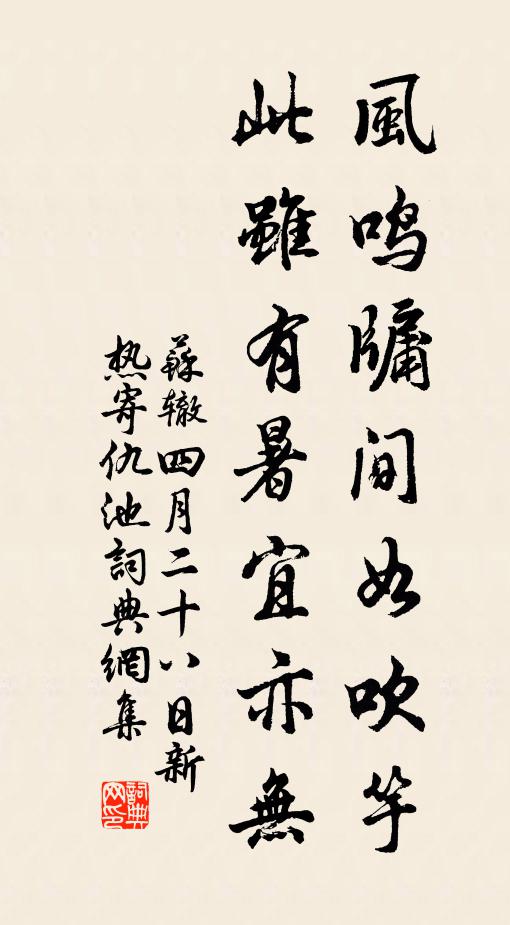 風鸣牗间如吹竽
此雖有暑宜亦無
蘇辙四月二十八日新
热寄仇池詞典網集
詞典网印